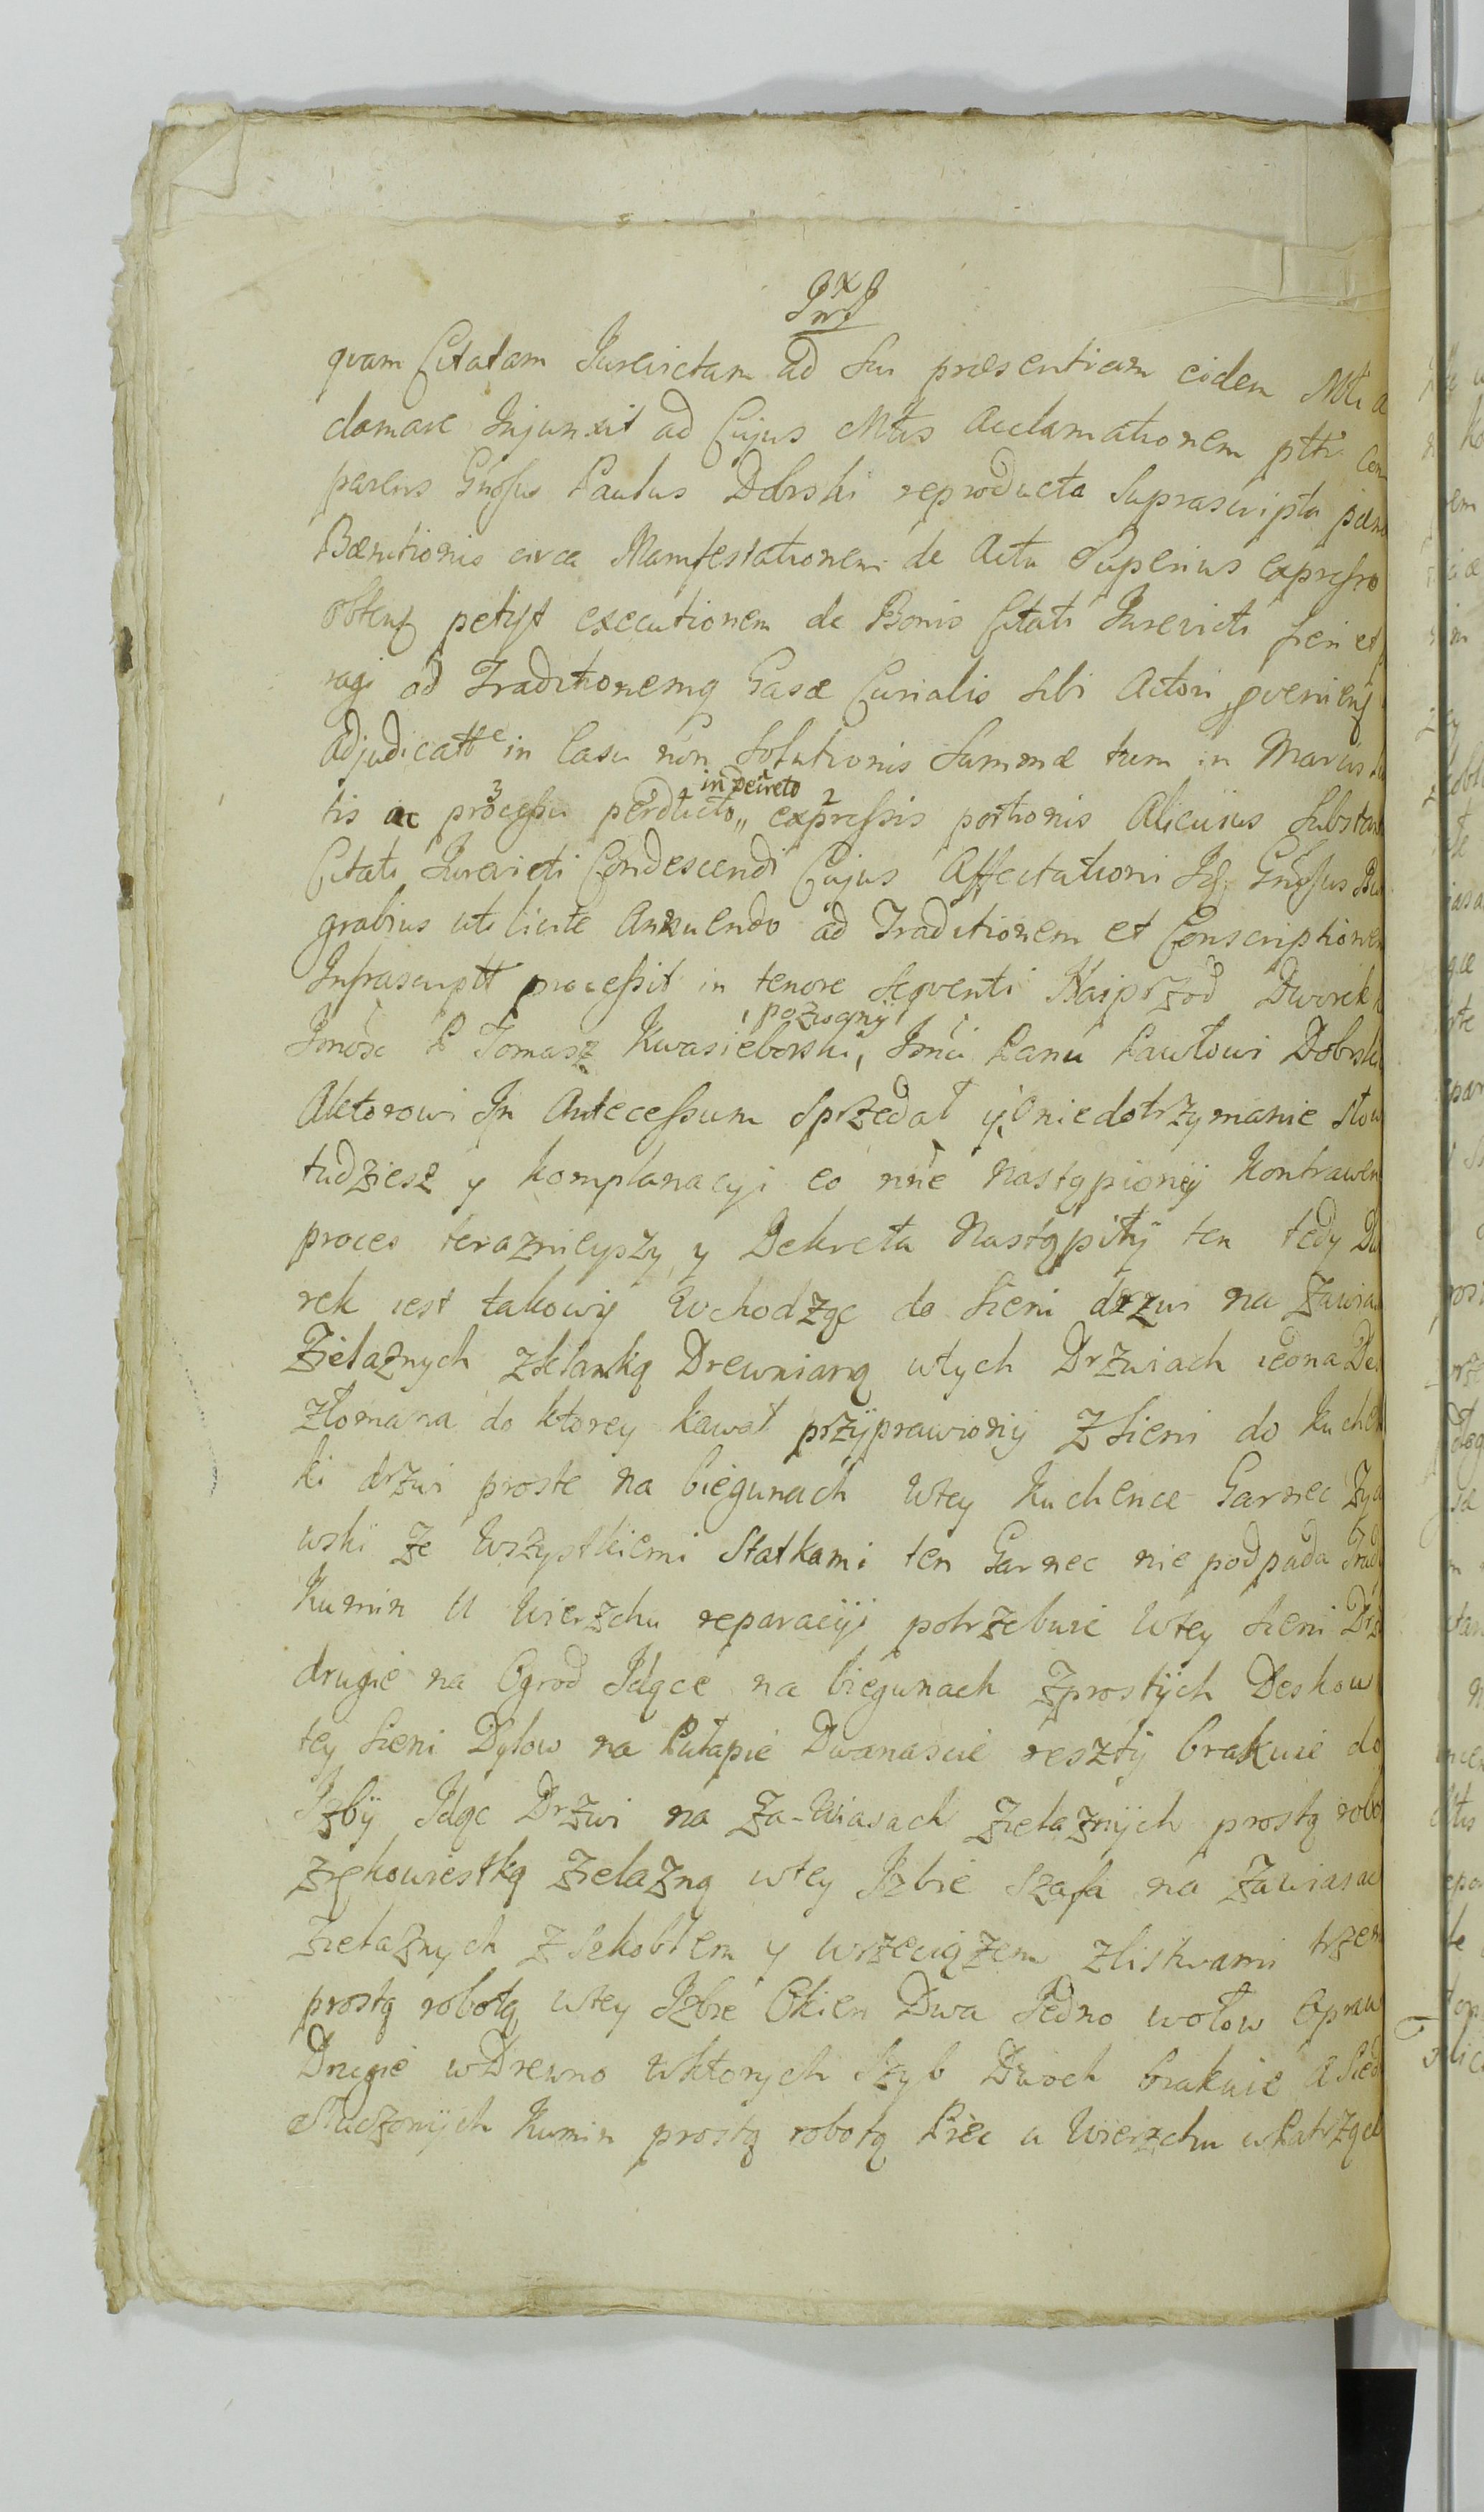 quam Citatam Jurevictam ad sui præsentiam eidem Mti a
clamare Injunxit ad Cujus Mtis acclamationem ptr com
parens Gnosus Paulus Dobrski reproducta Suprascripta pæna
Bænitionis circa Manifestationem de Actu Superius expresso
obtent petijt executionem de Bonis Citati Jurevicti fieri et
ragi ad Traditionemq Casæ Curialis sibi Actori
adjudicatte in Casu non Solutionis Summæ tum in Marcis
tis ac processu perducto,, in decreto expressis portionis Alicujus Substan
Citati Jurevicti Condescendi Cujus Affectationi Gnosus Bur
grabius uti licite Annuendo ad Traditionem et Conscriptionem
Infrascriptt processit in tenore sequenti Naiprzod Dworek
Jmość P Tomasz Kwasieborski, pozwany Jmci Panu Pawłowi Dobrski
Aktorowi In Antecessum Sprzedał y o niedotrzymanie słow
tudziesz y komplanacyi co nie nastąpiony Kontrawen
proces teraznieyszy y Dekreta Nastąpiły ten tedy Dwo
rek iest takowy Wchodząc do Sieni drzwi na Zawias
Zielaznych zklamką Drewnianą wtych Drzwiach iedna Des
złomana do ktorey kawał przyprawiony Z Sieni do Kuchen
ki drzwi proste na biegunach Wtey Kuchence Garnec
wski ze Wszystkiemi Statkami ten Garnec nie podpada Trad
Kumin U Wierzchu reparacyi potrzebuie Wtey Sieni Drz
drugie na Ogrod Idące na biegunach Zprostych Deskow
tey Sieni Dylow na Pułapie Dwanascie reszty brakuie do
Izby Idąc Drzwi na Za-Wiasach Zielaznych prostą robo
Zrękowiestką Zielazną wtey Izbie Szafa na Zawiasac
Zielaznych z Szkoblem y wrzeciązem zlistwami trzem
prostą robotą wtey Izbie Okien Dwa Jedno wołow Opraw
Drugie wDrewno wktorych Szyb Dwoch brakuie a Sied
stluczonych Kumin prostą robotą Piec u Wierzchu